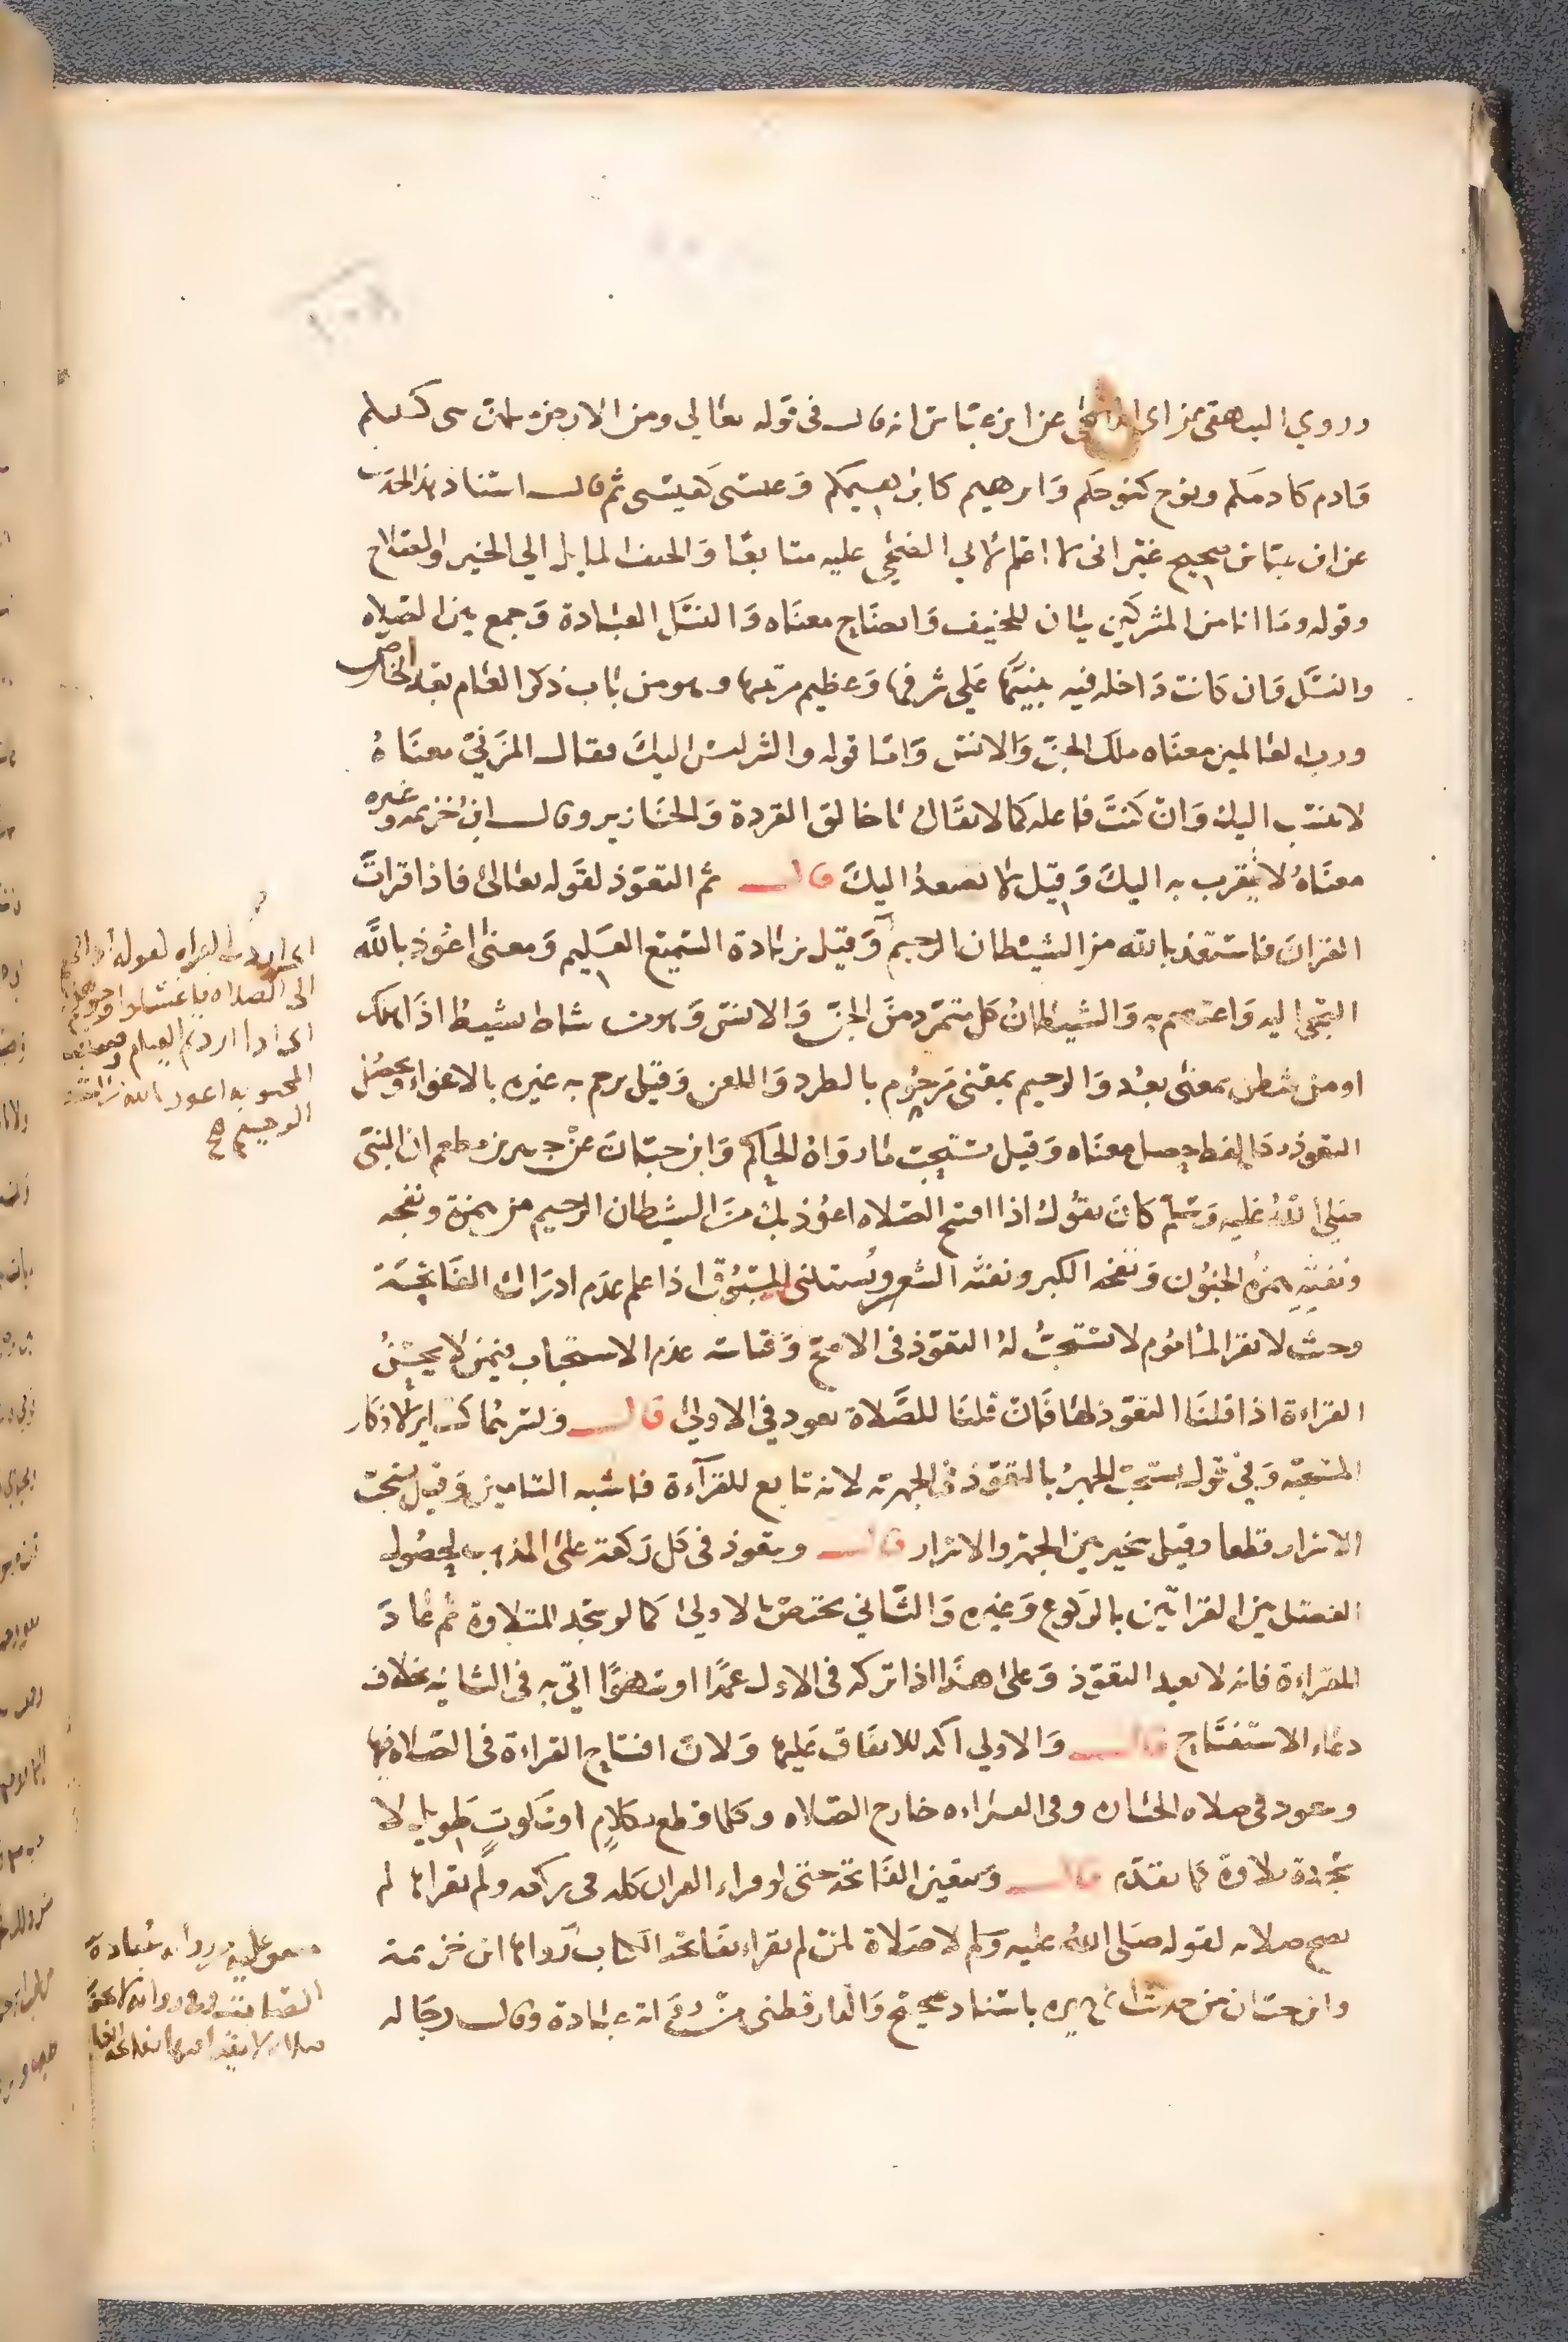 وروي البيهقي عن ابي الضحي عن ابن عباس انه قال في قوله تعالي ومن الارض مثلهن سبع كنبيكم
فادم كادمكم ونوح كنوحكم وابرهيم كابراهيمكم وعيسى كعيسى ثم قال اسناد هذا الحديث
عن ابن عباس صحيح غير اني لا اعلم لابي الضحي عليه متابعا والحنف المايل الي الخير والصلاح
وقوله وما انا من المشركين بيان للحنيف وايضاح معناه والنسك العبادة وجمع بين الصلاه
والنسك وان كانت داخله فيه تنبيها علي شرفها وعظيم مرتبتها وهو من باب ذكر العام بعد الخاص
ورب العالمين معناه ملك الجن والانس واما قوله والشر ليس اليك فقال المزني معناه
لا ينسب اليك وان كنت فاعله كما لا يقال يا خالق القردة والخنازير وقال ابن خزيمه وغيره
معناه لا يتقرب به اليك وقيل لا يصعد اليك قال ثم التعوذ لقوله تعالى فاذا قرات
القران فاستعذ بالله من الشيطان الرجيم وقيل بزيادة السميع العليم ومعنى اعوذ بالله
التجي اليه واعتصم به والشيطان كل متمرد من الجن والانس وهو من شاط يشيط اذا هلك
او من شطن بمعنى بعد والرجيم بمعنى مرجوم بالطرد واللعن وقيل يرجم به غيره بالاغواء ويحصل
التعوذ بكل لفظ يحصل معناه وقيل يستحب ما رواه الحاكم وابن حبان عن جبير بن مطعم ان النبي
صلى الله عليه وسلم كان يقول اذا افتتح الصلاه اعوذ بك من الشيطان الرجيم من همزه ونفخه
ونفثه همزه الجنون ونفخه الكبر ونفثه الشعر ويستثنى المسبوق اذا علم عدم ادراك الفاتحة
وحيث لا يقرا الماموم لا يستحب له التعوذ في الاصح وقياسه عدم الاستحباب فيمن لا يحسن
القراءة اذا قلنا التعوذ لها فان قلنا للصلاة تعوذ في الاولى قال ويسر بهما كساير الاذكار
المستحبه وفي قول يستحب الجهر بالتعوذ في الجهريه لانه تابع للقراءة فاشبه التامين وقيل يستحب
الاسرار قطعا وقيل يخير بين الجهر والاسرار قال ويتعوذ في كل ركعة على المذهب لحصول
الفصل بين القراتين بالركوع وغيره والثاني يختص بالاولى كما لو سجد للتلاوة ثم عاد
للقراءة فانه لا يعيد التعوذ وعلى هذا اذا تركه في الاولى عمدا او سهوا اتي به في الثانيه بخلاف
دعاء الاستفتاح قال والاولي اكد للاتفاق عليها ولان افتتاح القراءة في الصلاة فيها
ويتعوذ في صلاه الجنازه وفي القراءه خارج الصلاه وكلما قطع بكلام او سكوت طويل لا
سجدة تلاوة كما تقدم قال وتتعين الفاتحه حتى لو قراء القران كله في ركعه ولم يقراها لم
تصح صلاته لقوله صلى الله عليه وسلم لا صلاة لمن لم يقراء بفاتحة الكتاب رواها ابن خزيمة
وابن حبان من حديث ابي هريره باسناد صحيح والدارقطني من رواية عبادة وقال رجاله
اي اذا اردت القراه لقوله اذا قمتم
الى الصلاه فاغسلوا وجوهكم
اي اذا اردتم القيام
اعوذ بالله من الشيطان
الرجيم صح
متفق عليه من رواية عبادة